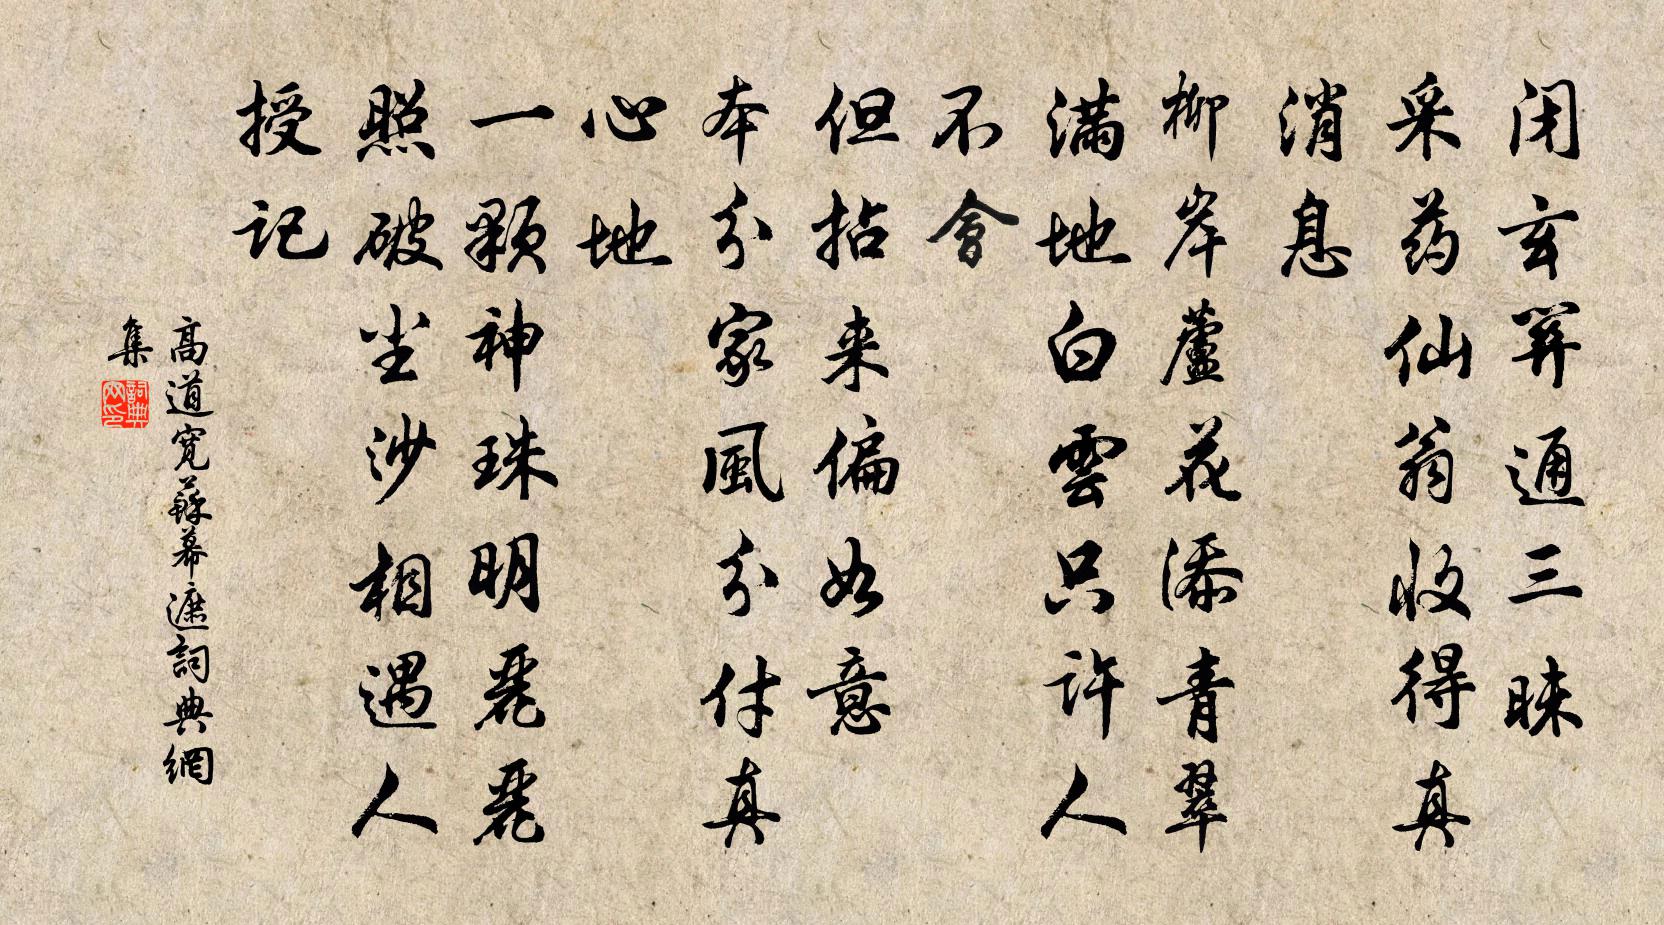 闭玄关通三昧
采药仙翁收得真
消息
柳岸蘆花添青翠
满地白雲只许人
不會
但拈来偏如意
本分家風分付真
心地
一颗神珠明麗麗
照破尘沙相遇人
授记
高道宽蘇幕遮詞典網
集
詞典
网印